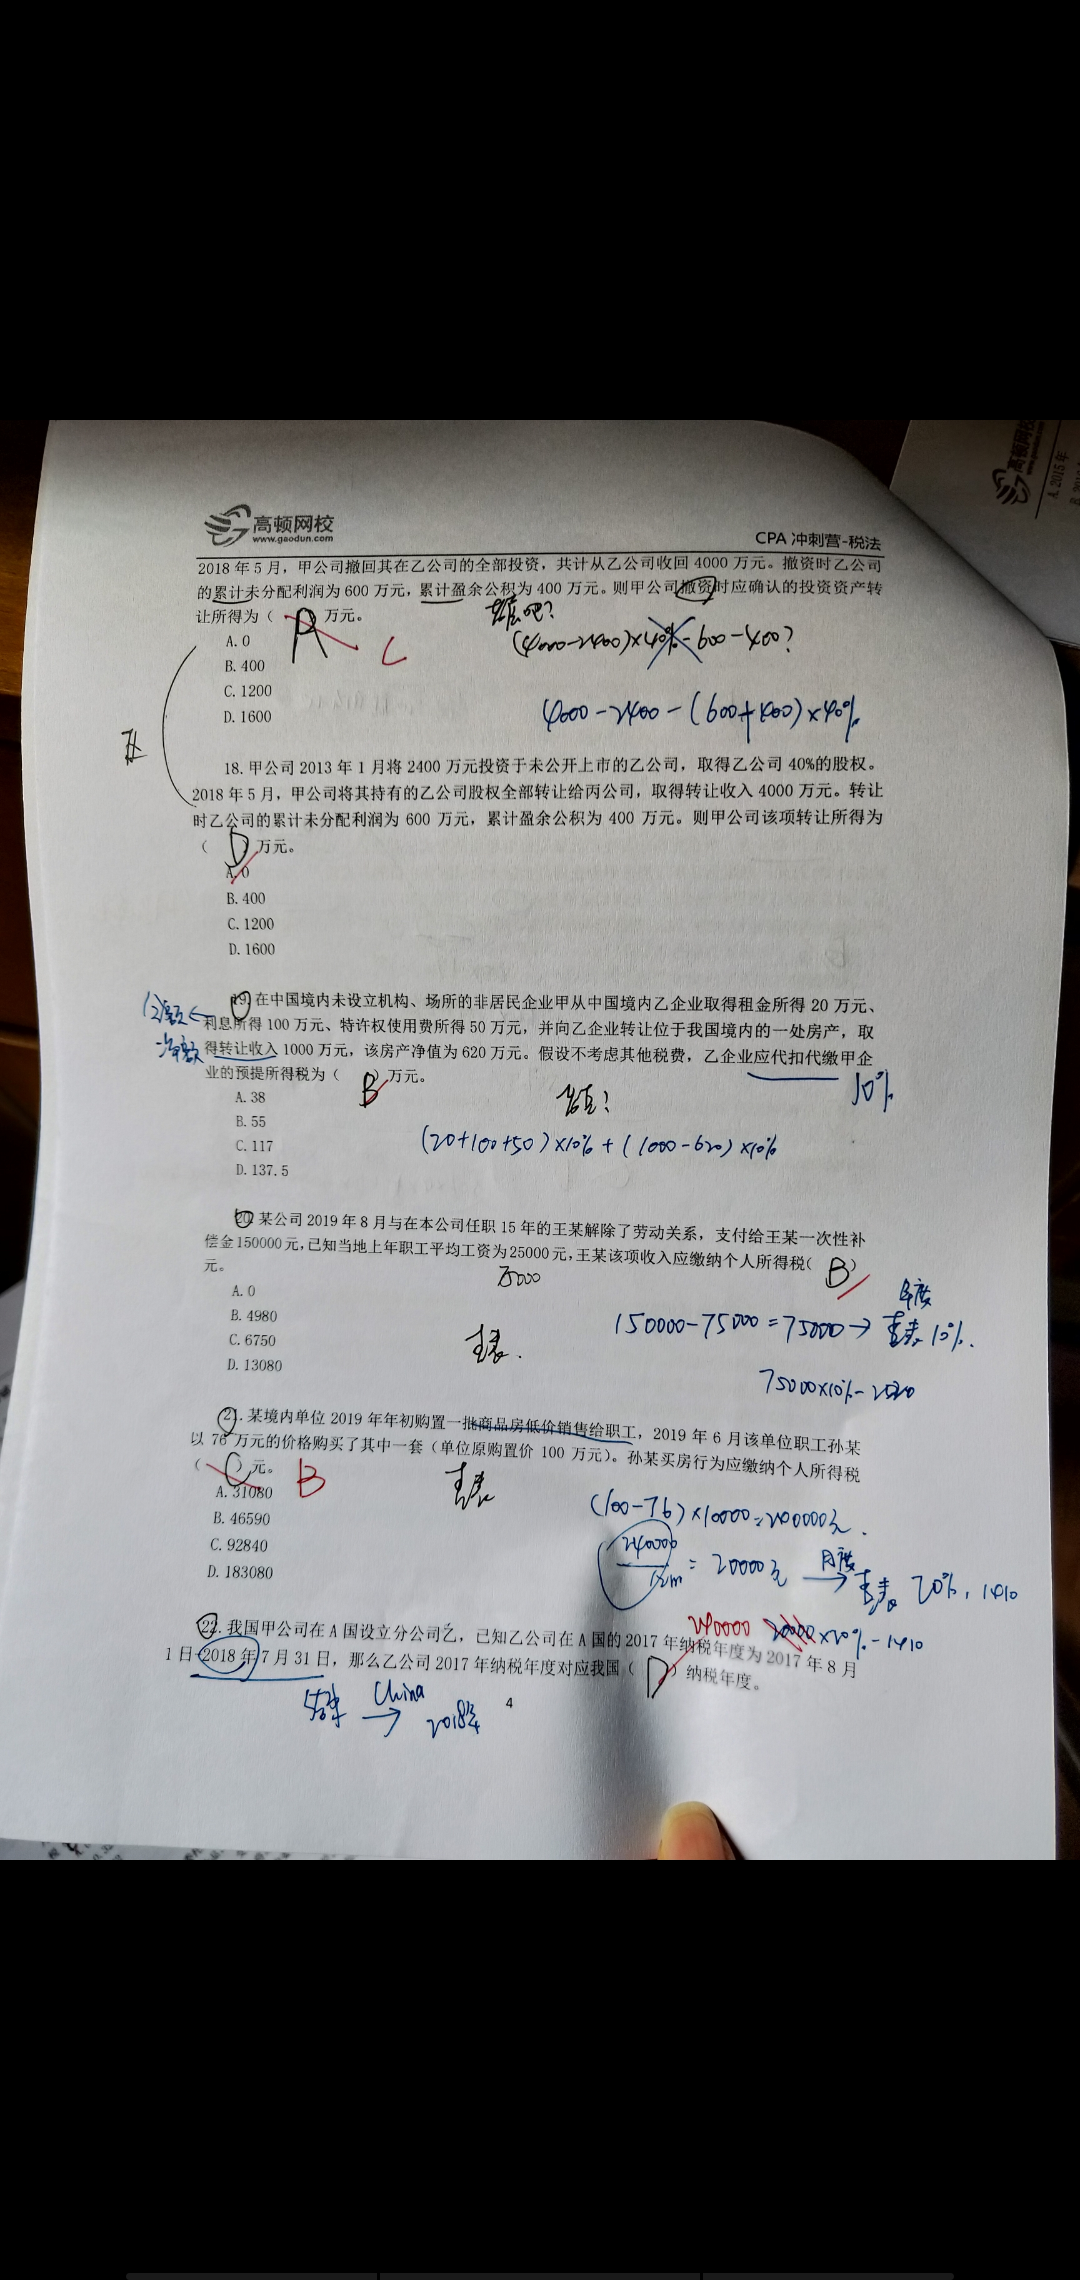 高顿网校
www.gaodun.com
CPA 冲刺营-税法
2018 年 5 月，甲公司撤回其在乙公司的全部投资，共计从乙公司收回 4000 万元。撤资时乙公司
的累计未分配利润为 600 万元，累计盈余公积为 400 万元。则甲公司撤资时应确认的投资资产转
让所得为（ A 万元。
C
(4000-2400)×40%-600-400?
A. 0
B. 400
C. 1200
D. 1600
4000-2400-(600+400)×40%
18. 甲公司 2013 年 1 月将 2400 万元投资于未公开上市的乙公司，取得乙公司 40%的股权。
2018 年 5 月，甲公司将其持有的乙公司股权全部转让给丙公司，取得转让收入 4000 万元。转让
时乙公司的累计未分配利润为 600 万元，累计盈余公积为 400 万元。则甲公司该项转让所得为
（ D 万元。
A. 0
B. 400
C. 1200
D. 1600
19. 在中国境内未设立机构、场所的非居民企业甲从中国境内乙企业取得租金所得 20 万元、
利息所得 100 万元、特许权使用费所得 50 万元，并向乙企业转让位于我国境内的一处房产，取
得转让收入 1000 万元，该房产净值为 620 万元。假设不考虑其他税费，乙企业应代扣代缴甲企
业的预提所得税为（ B ）万元。
10%
A. 38
B. 55
C. 117
D. 137.5
(20+100+50)×10%+(1000-620)×10%
20. 某公司 2019 年 8 月与在本公司任职 15 年的王某解除了劳动关系，支付给王某一次性补
偿金 150000 元，已知当地上年职工平均工资为 25000 元，王某该项收入应缴纳个人所得税（ B ）
元。
A. 0
B. 4980
C. 6750
D. 13080
150000-75000=75000→
10%.
75000×10%-2520
21. 某境内单位 2019 年年初购置一批商品房低价销售给职工，2019 年 6 月该单位职工孙某
以 76 万元的价格购买了其中一套（单位原购置价 100 万元）。孙某买房行为应缴纳个人所得税
（ C ）元。
B
A. 31080
B. 46590
C. 92840
D. 183080
240000
=20000元
月度
20%，1410
240000 20000×20%-1410
22. 我国甲公司在 A 国设立分公司乙，已知乙公司在 A 国的 2017 年纳税年度为 2017 年 8 月
1 日-2018 年 7 月 31 日，那么乙公司 2017 年纳税年度对应我国（ D ）纳税年度。
China
2018年
4
高顿网校
A. 2015 年